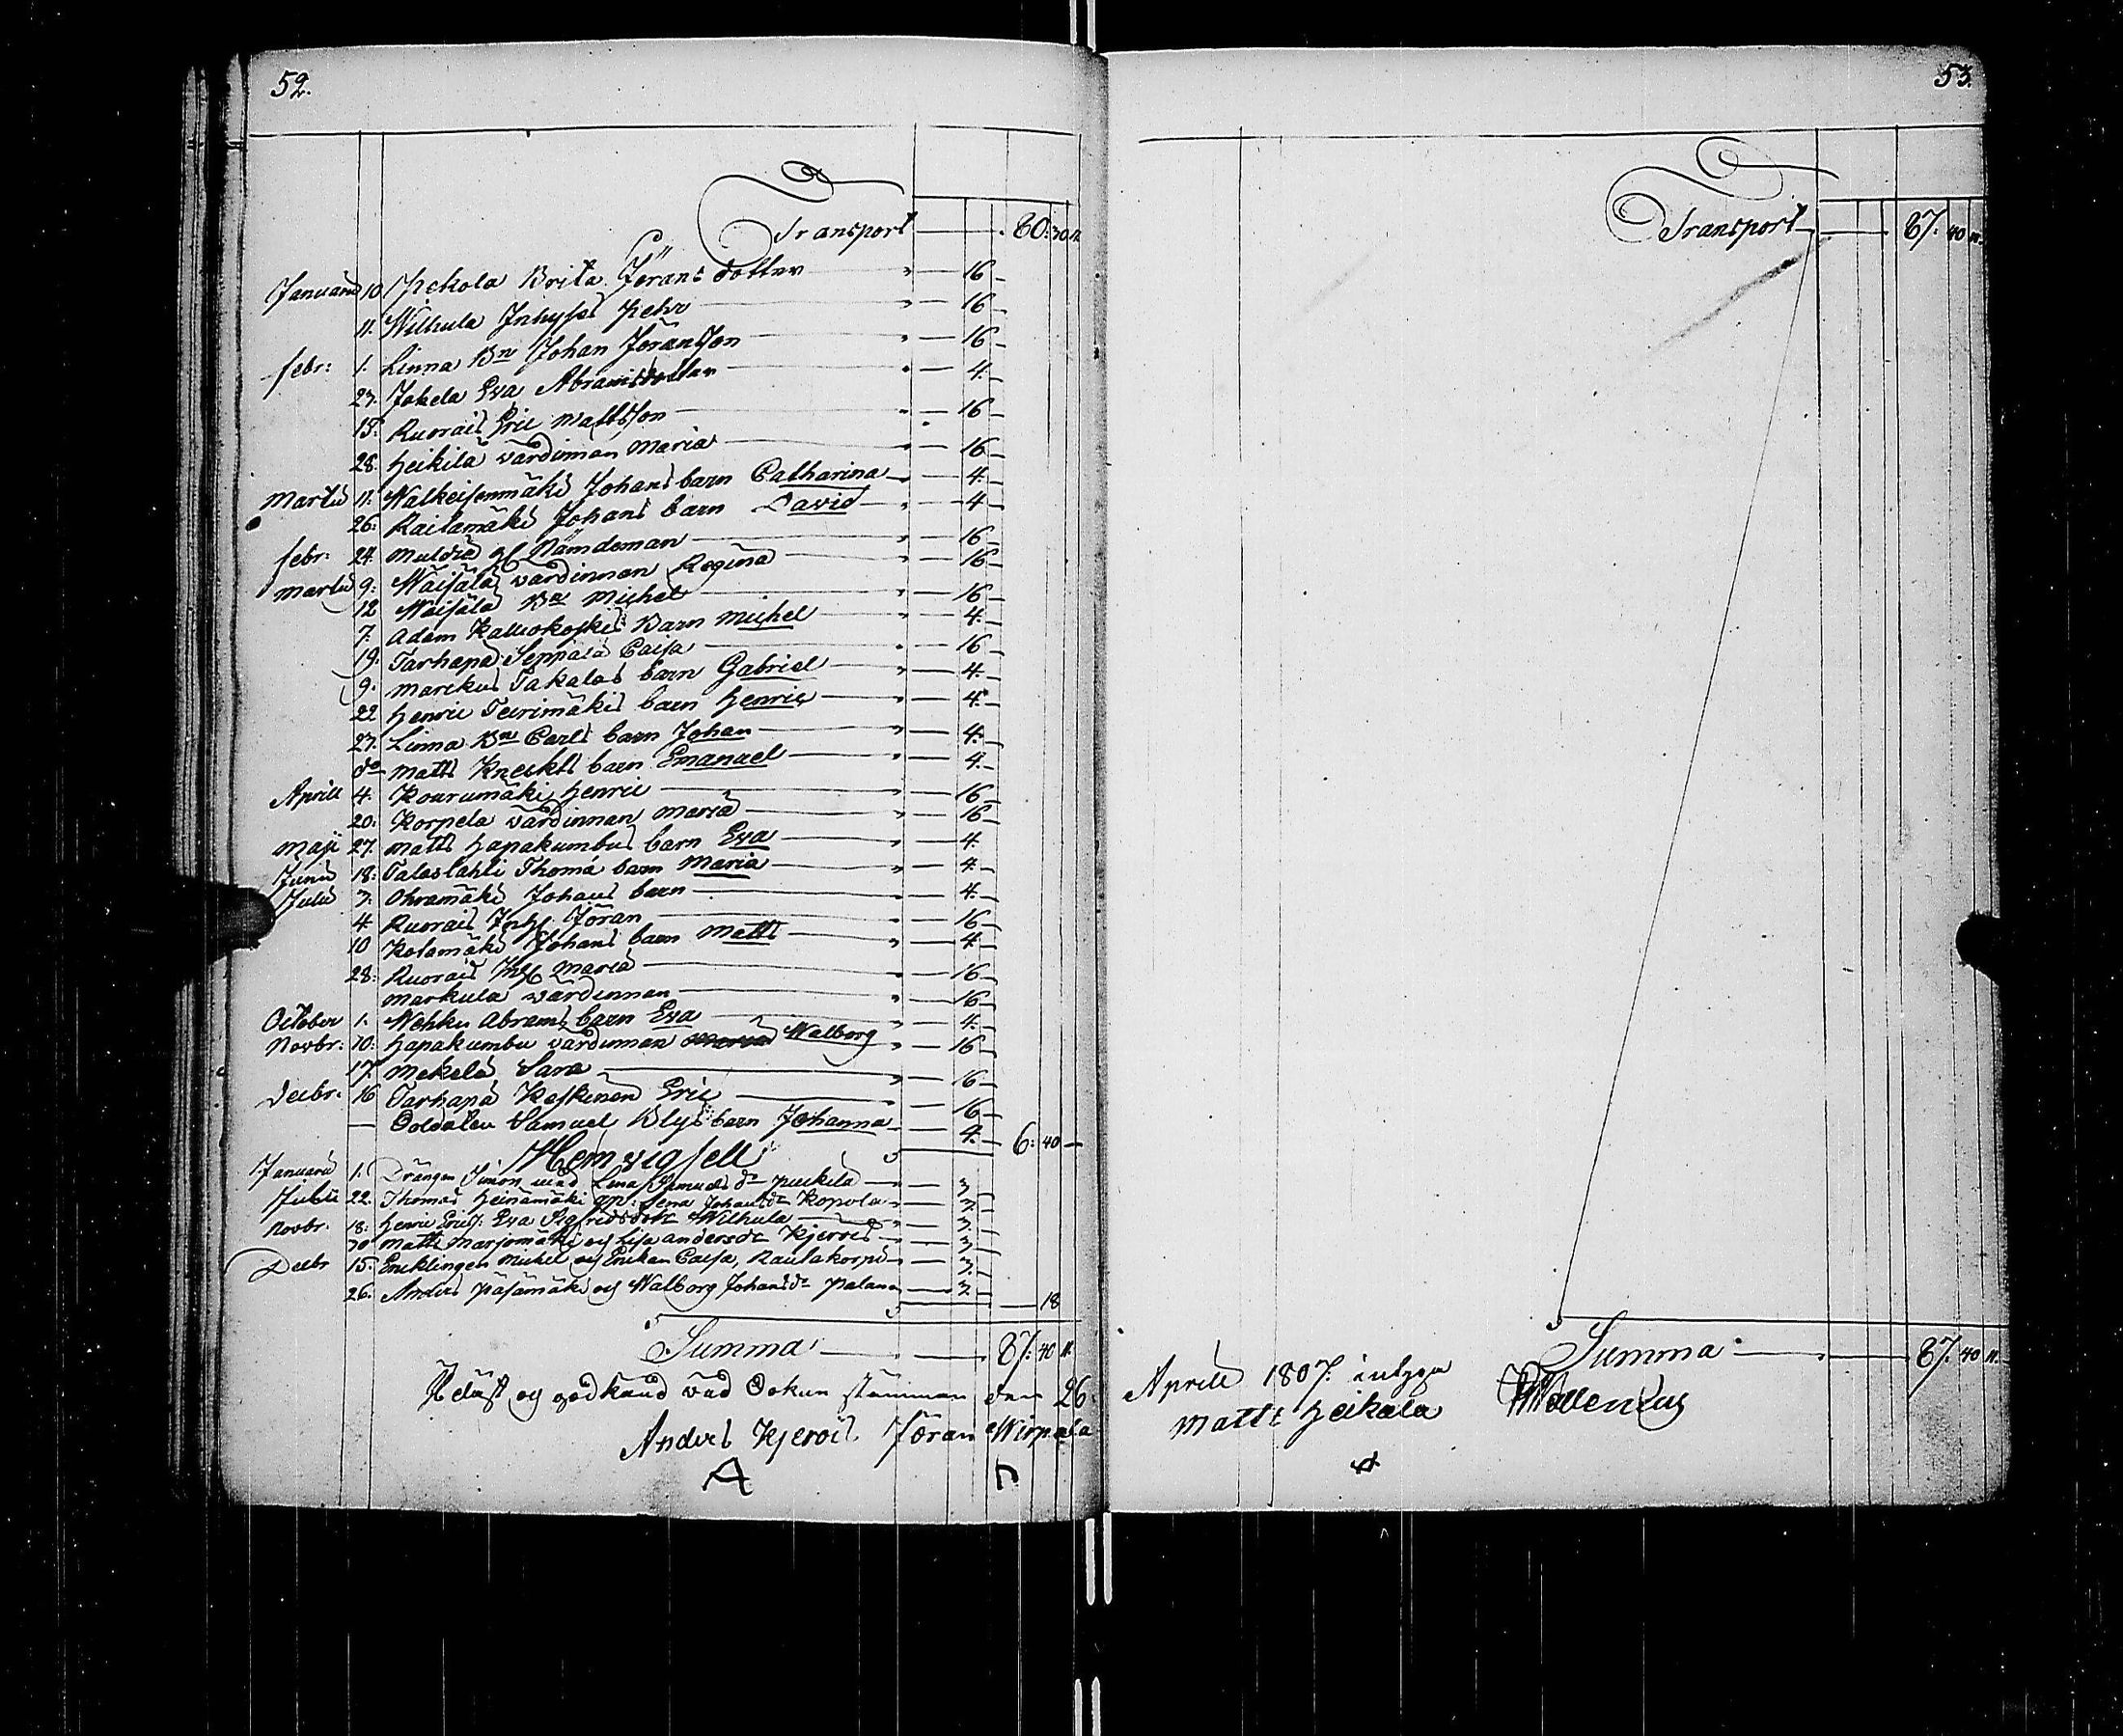 52.
Transport — 80: 30 11.
Januarii 10 Pekola Brita Jörans dotter — 16 –
11. Wilhula Inhyses Petr — 16 –
febr: 1. Linna Bn Johan Jöransson — 16 –
23. Jokela Eva Abramsdotter — 4 –
13. Ruorais Eric Mattsson — 16 –
28. Heikila värdinnan Maria — 16 –
Martii 11. Walkeisenmäki Johans barn Catharina — 4 –
26. Railamäki Johans barn David — 4
febr: 24. Muldia gl Nämdeman — 16 –
Martii 9. Wäisälä värdinnan Regina — 16 –
12 Wäisälä Bn Michel — 16 –
7. Adam Kalliokoskis Barn Michel — 4 –
19. Tarhapä Seppälä Caisa — 16
9. Marckus Takalas barn Gabriel — 4 –
22 Henric Teerimäkis barn Henric — 4 –
27. Linna Bn Carls barn Johan — 4 –
do Matts Knecktls barn Emanuel — 4 –
Aprill 4. Kourumäki Henric — 16 –
20. Korpela värdinnan Maria — 16 –
Maji 27. Matts Hapakumbus barn Eva — 4
Junii 18. Taloslahti Thoma barn Maria — 4 –
Julii 3. Ohramäki Johans barn — 4 –
4 Ruorais Inhs. Jöran — 16 –
10 Kolamäki Johans barn Matts — 4 –
28: Ruorais Inhs Maria — 16 –
Markula värdinnan — 16 –
October 1. Wehku Abrams barn Eva — 4 –
Novbr: 10: Hapakumbu värdinnan Walborg — 16 –
17. Mekelä Sara — 16 –
Decbr. 16 Tarhapä Keskinen Eric — 16 –
— Soldaten Samuel Blys barn Johanna — 4 – 6: 40 –
Hemvigsell
Januarii 1. Drängen Simon med Lena Samuels dr — 3 –
Julii 22. Thomas Heinämäki Lena Johansdr Kopola — 3 –
Novbr. 18: Henric Erics. Eva Sigfridsdotr Wilhula — 3 –
30 Matts Marjomäki og Lisa andersdr Kjerois — 3 –
Decbr 15. Enklingen Michel og Enkan Caisa, Raulakorpi — 3 –
26. Anders Päsämäki og Walborg Johansdr Palan — 3 –
— 18
Summa — 87: 40 11.
Upläst og godkänd vid Sockne stämman den 26
Anders Kjerois Jöran Wirpala
A
53.
Transport — 87. 40 11.
Summa — 87. 40 11.
Aprill 1807. intyga
Matts Heikala